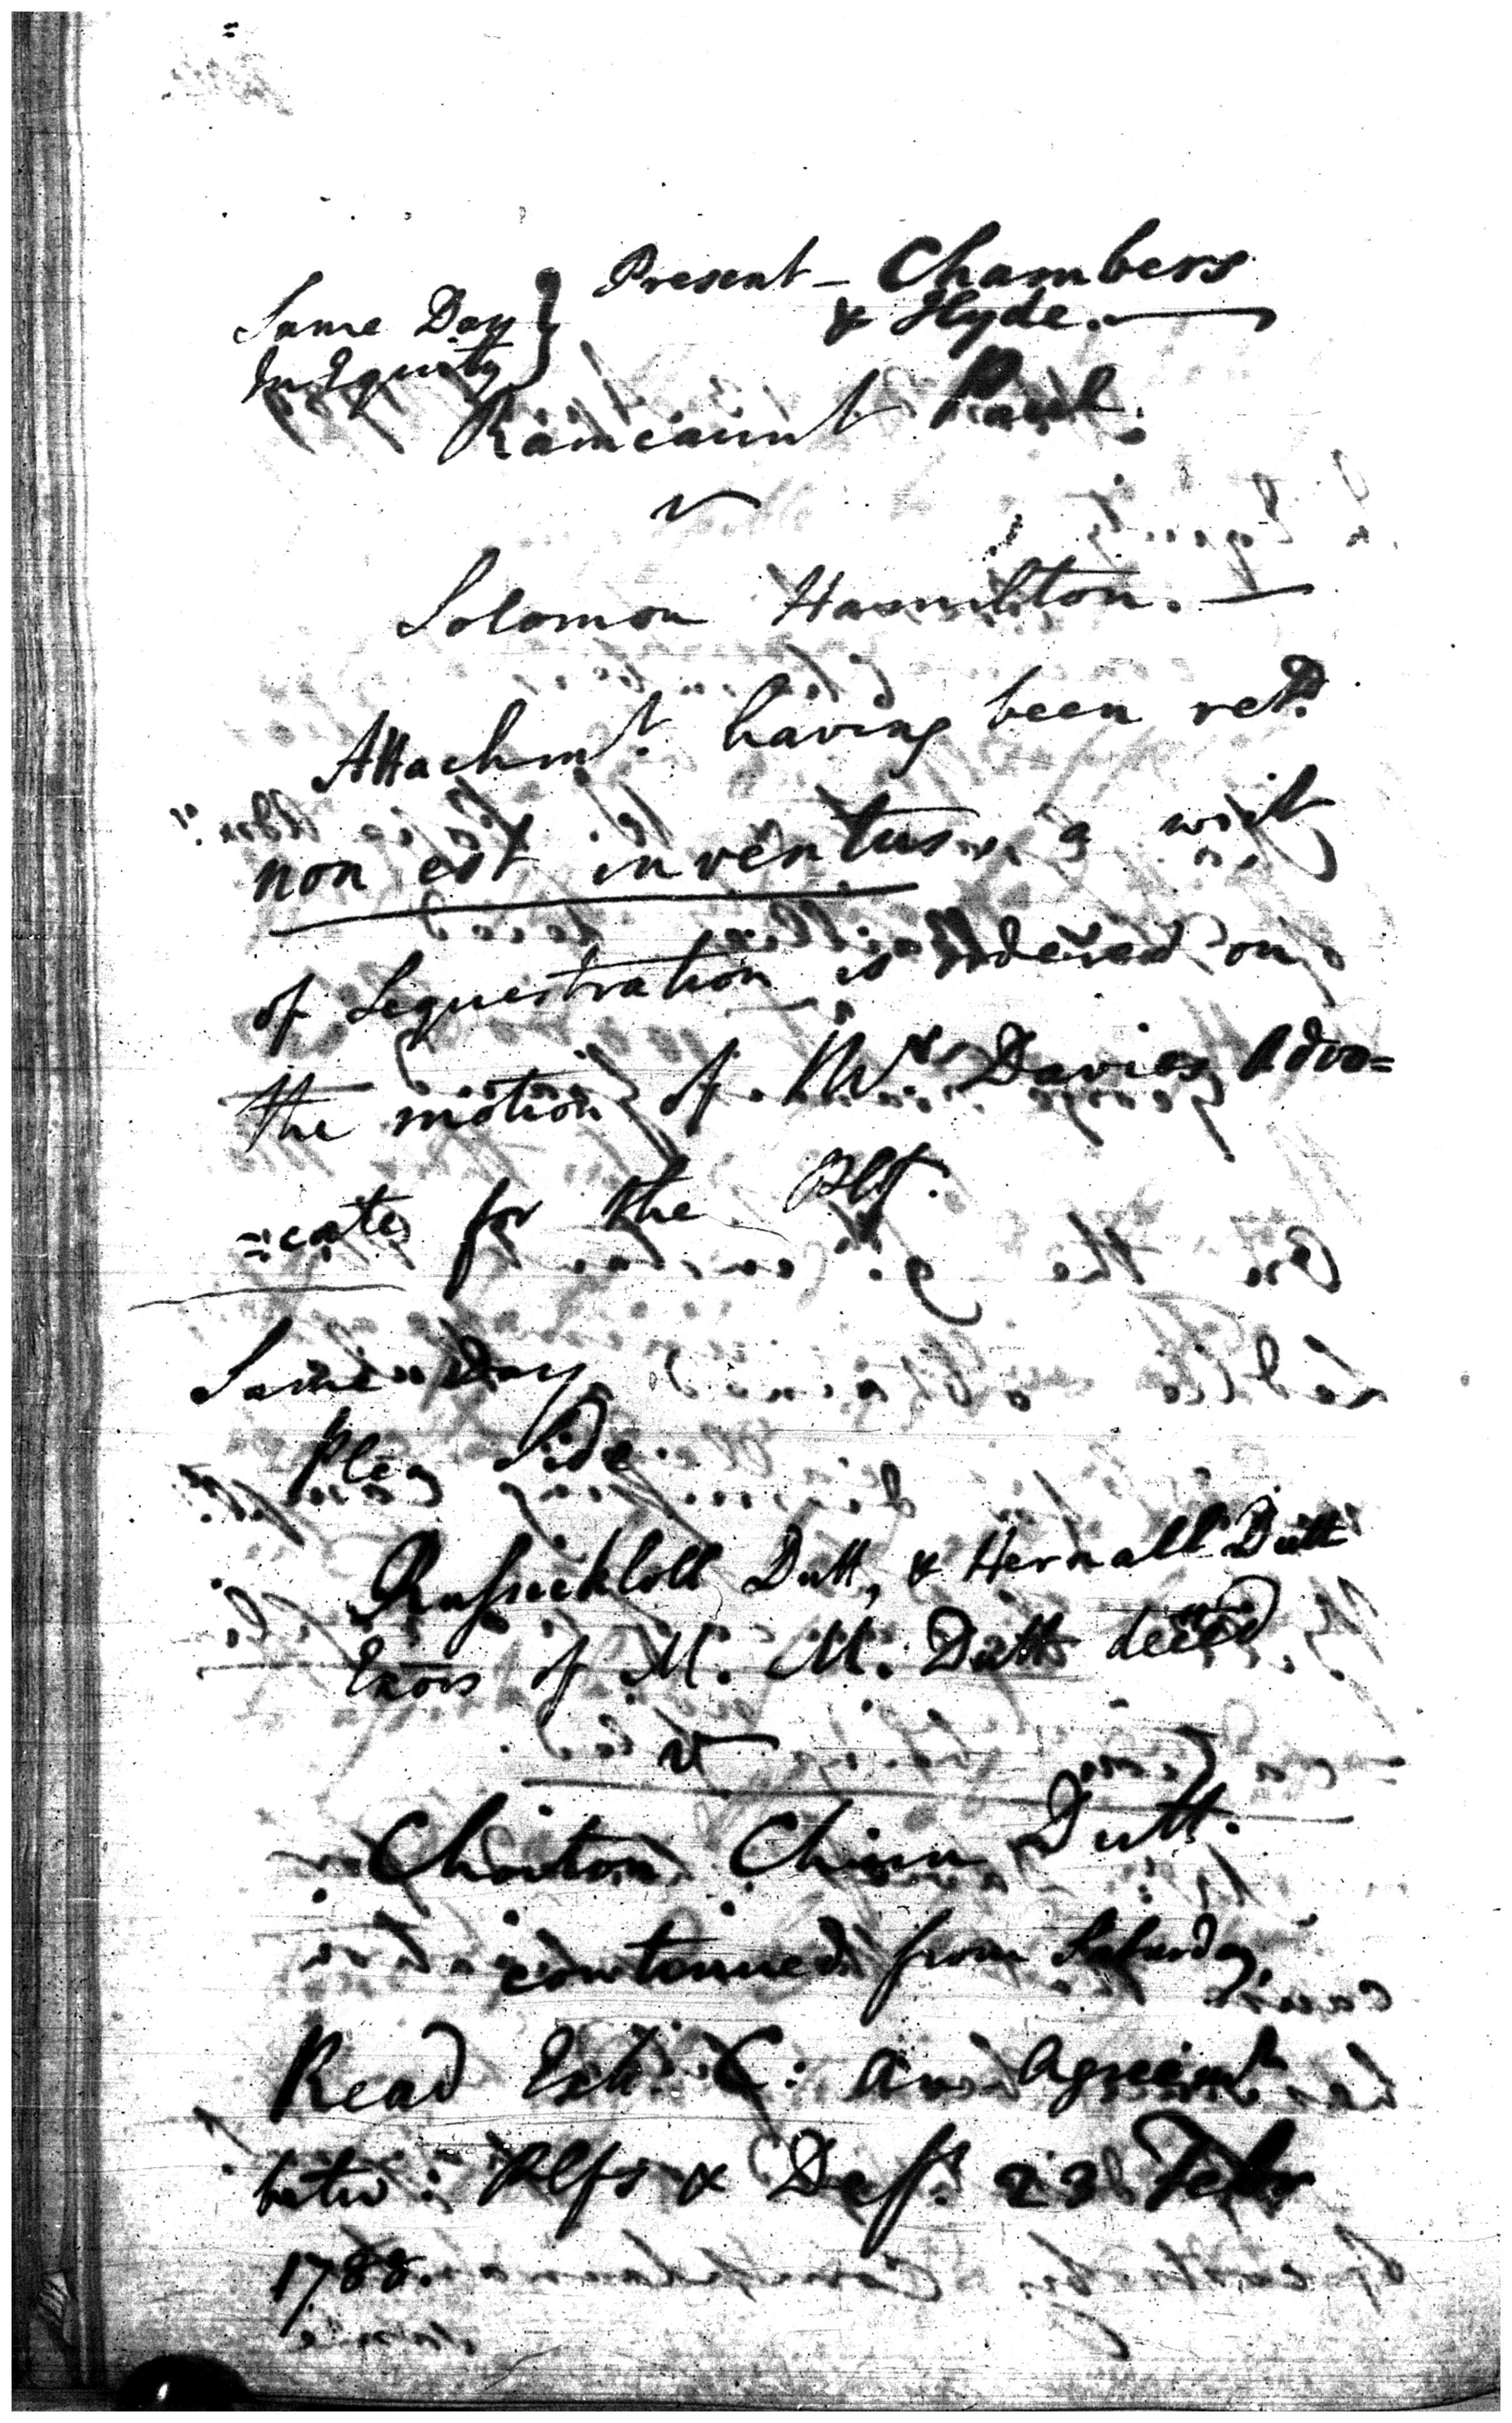 Present - Chambers
& Hyde. —
Same Day
In Equity }
Ramcaunt Paul.
v
Solomon Hamilton. —
Attachmt. having been retd.
non est inventus, a writ
of Sequestration is ordered on
the motion of Mr. Davies Advo=
=cate for the Plf.
Same Day
Plea Side.
Russickloll Dutt, & Hernall Dutt
Exors of M. M. Dutt deced
v
Choiton Churn Dutt.
continued from Saturday
Read Exh. C: an Agreemt
betw: Plfs & Deft. 23 Febr
1788.